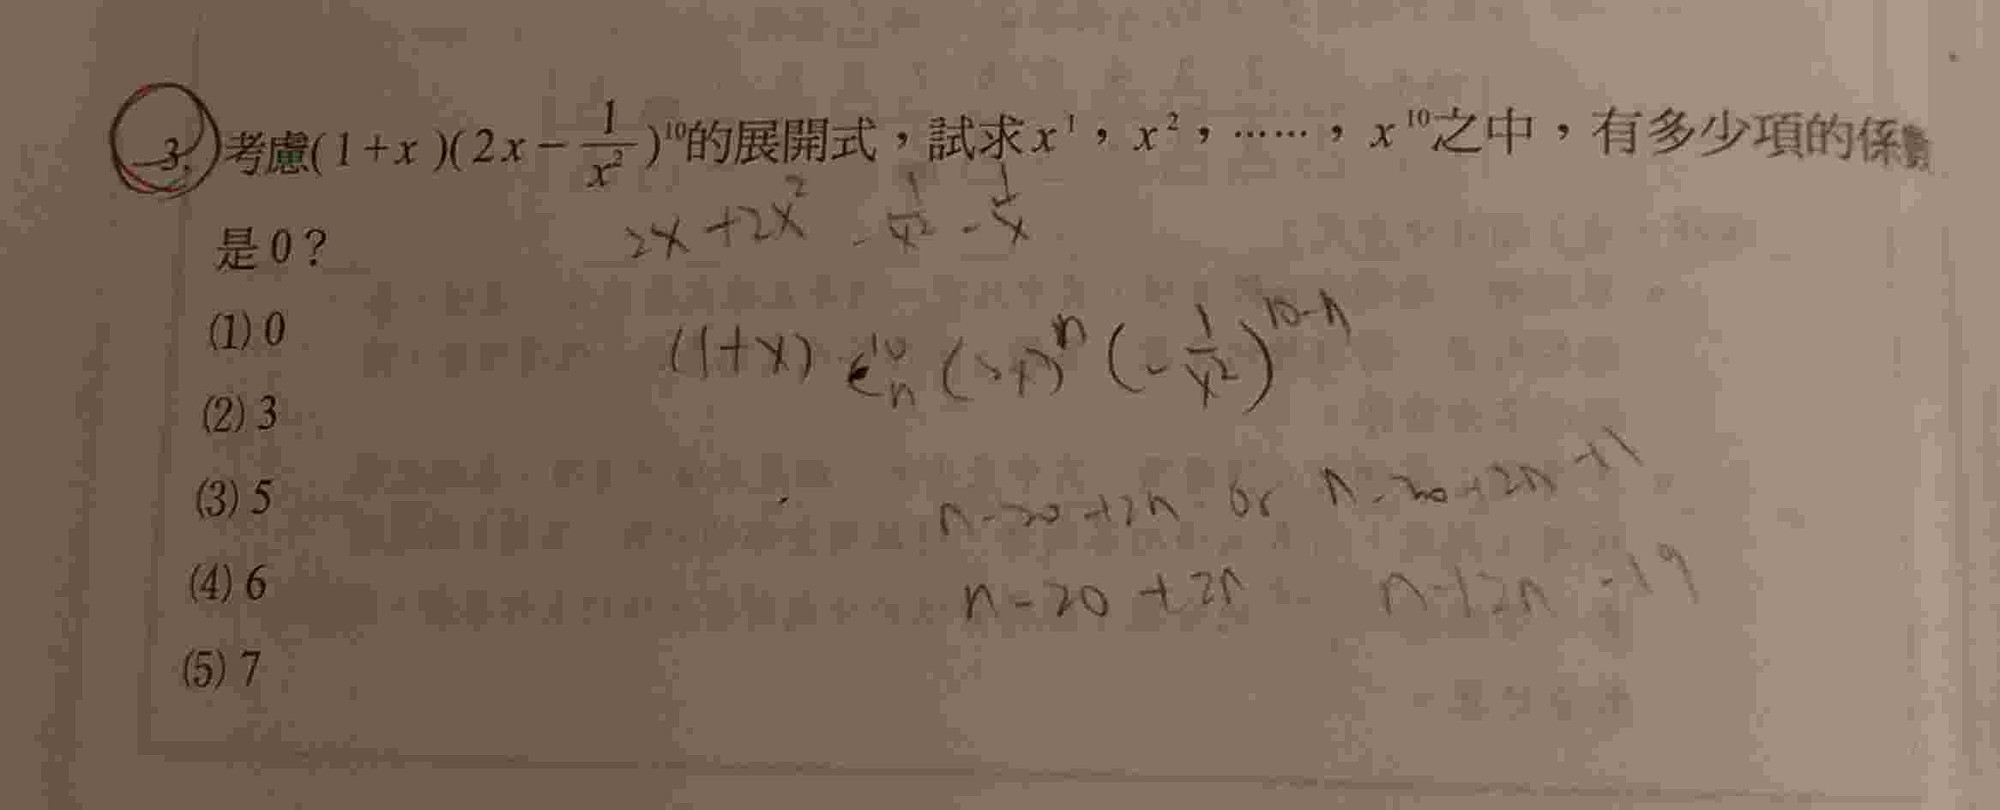 3. 考慮(1+x)(2x-1/x²)¹⁰的展開式，試求x¹，x²，……，x¹⁰之中，有多少項的係數
是0？
2x+2x²-1/x²-1/x
(1) 0
(1+x) C¹⁰ₙ (2x)ⁿ(-1/x²)¹⁰⁻ⁿ
(2) 3
(3) 5
n-20+2n or n-20+2n+1
(4) 6
n-20+2n n+2n-19
(5) 7